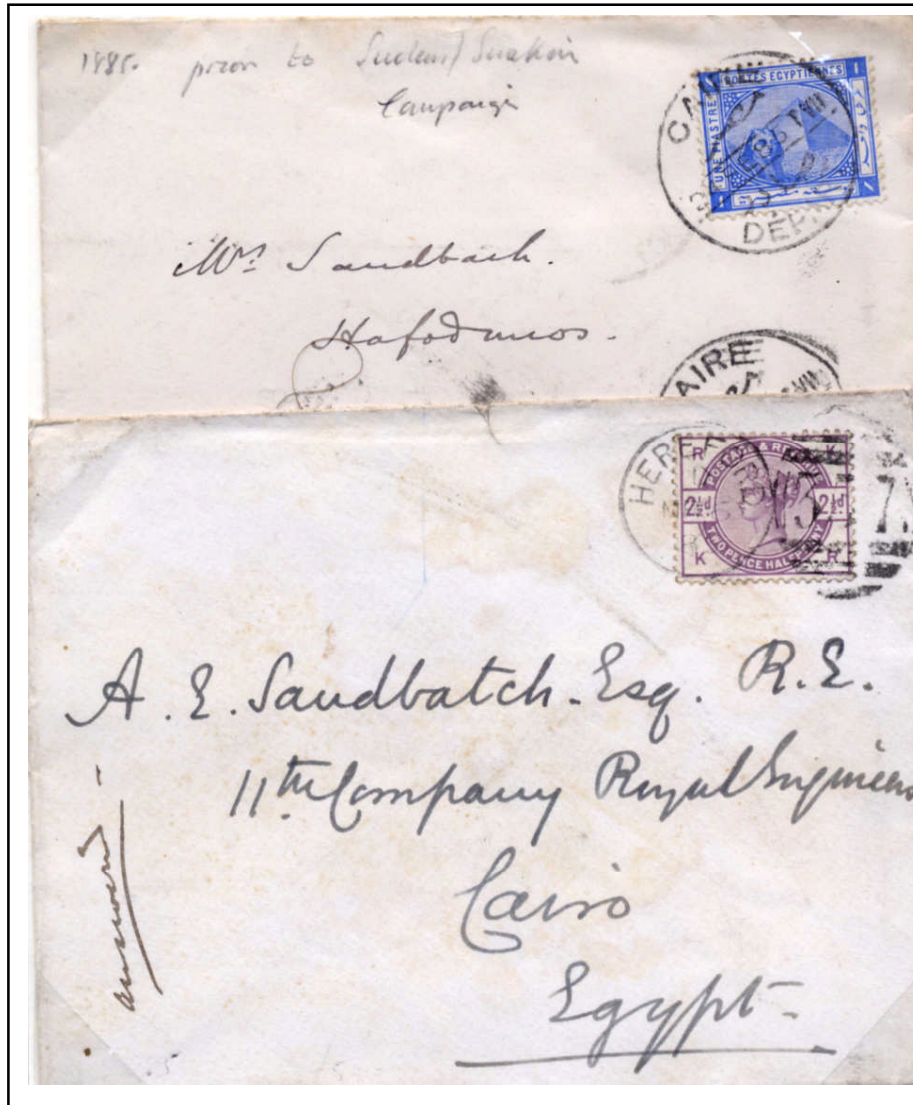 1885. prior to Sudan/Suakin
Campaign
POSTES EGYPTIENNES
UNE PIASTRE
DEP
Mrs Sandbach.
Hafodunos.
AIRE
HEREF
R K
POSTAGE & RE
2½d. 2½d.
TWO PENCE HALFPENNY
K R
7
A. E. Sandbatch. Esq. R.E.
11th Company Royal Engineers
Cairo
Egypt-
answered